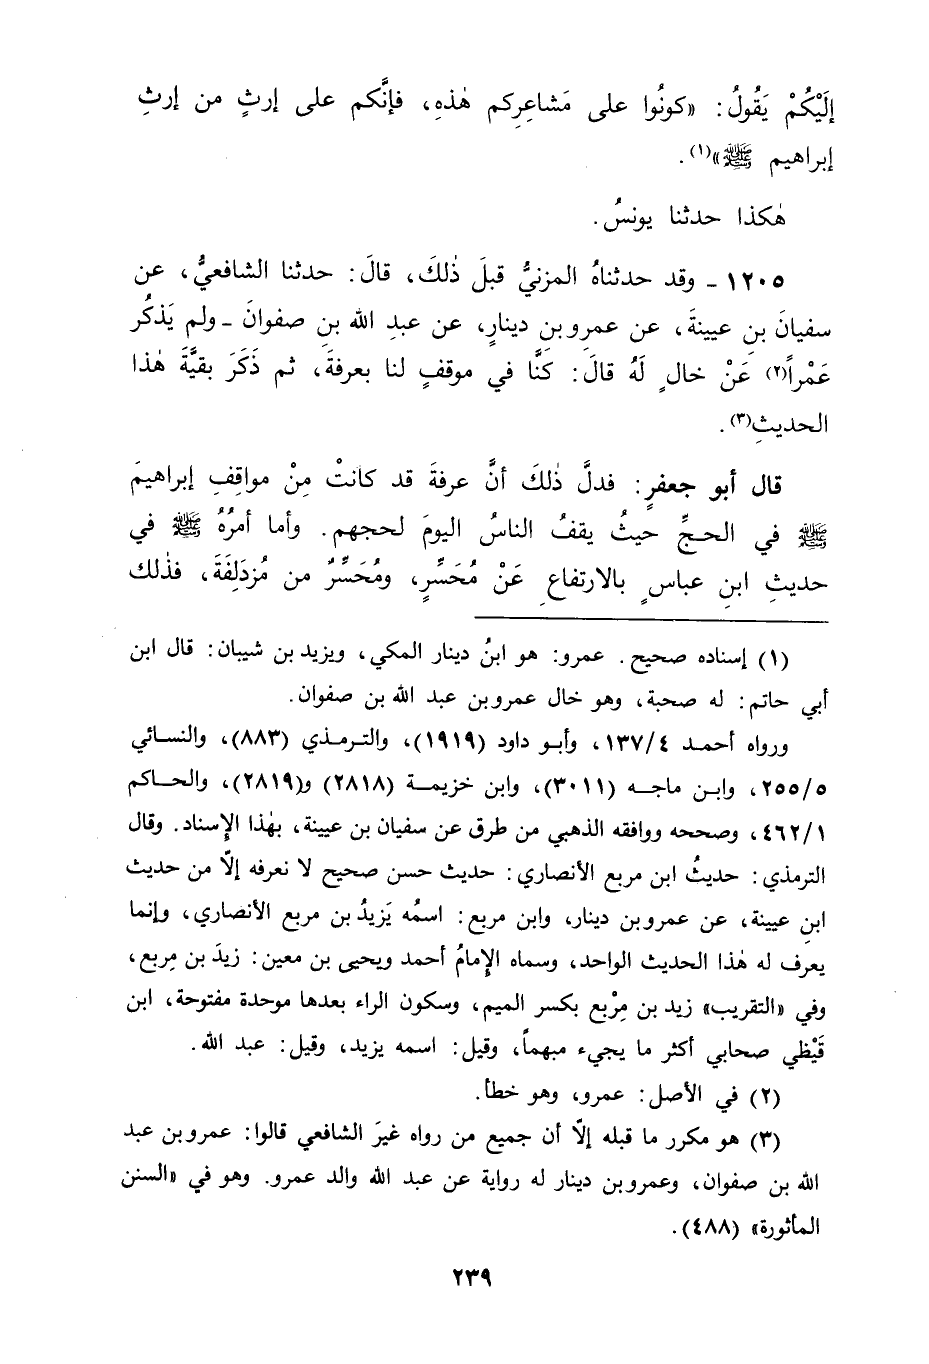 إلَيْكُمْ يَقُولُ: «كونُوا على مَشاعِرِكم هٰذهِ، فإنَّكم على إرثٍ من إرثِ
إبراهيم ﷺ»(١).
هٰكذا حدثنا يونسُ.
١٢٠٥ ـ وقد حدثناهُ المزنيُّ قبلَ ذٰلكَ، قالَ: حدثنا الشافعيُّ، عن
سفيانَ بنِ عيينةَ، عن عمرو بن دينارٍ، عن عبدِ الله بنِ صفوانَ ـ ولم يَذكُر
عَمْراً(٢) عَنْ خالٍ لَهُ قالَ: كنَّا في موقفٍ لنا بعرفةَ، ثم ذَكَرَ بقيَّةَ هٰذا
الحديثِ(٣).
قال أبو جعفرٍ: فدلَّ ذٰلكَ أنَّ عرفةَ قد كانتْ مِنْ مواقِفِ إبراهيمَ
ﷺ في الحجِّ حيثُ يقفُ الناسُ اليومَ لحجهم. وأما أمرُهُ ﷺ في
حديثِ ابنِ عباسٍ بالارتفاعِ عَنْ مُحَسِّرٍ، ومُحَسِّرٌ من مُزدَلِفَةَ، فذٰلك
(١) إسناده صحيح. عمرو: هو ابنُ دينار المكي، ويزيد بن شيبان: قال ابن
أبي حاتم: له صحبة، وهو خال عمرو بن عبد الله بن صفوان.
ورواه أحمد ١٣٧/٤، وأبو داود (١٩١٩)، والترمذي (٨٨٣)، والنسائي
٢٥٥/٥، وابن ماجه (٣٠١١)، وابن خزيمة (٢٨١٨) و(٢٨١٩)، والحاكم
٤٦٢/١، وصححه ووافقه الذهبي من طرق عن سفيان بن عيينة، بهٰذا الإِسناد. وقال
الترمذي: حديثُ ابن مربع الأنصاري: حديث حسن صحيح لا نعرفه إلّا من حديث
ابنِ عيينة، عن عمرو بن دينار، وابن مربع: اسمُه يَزيدُ بن مربع الأنصاري، وإنما
يعرف له هٰذا الحديث الواحد، وسماه الإِمامُ أحمد ويحيى بن معين: زيدَ بن مِربع،
وفي «التقريب» زيد بن مِرْبع بكسر الميم، وسكون الراء بعدها موحدة مفتوحة، ابن
قَيْظي صحابي أكثر ما يجيء مبهماً، وقيل: اسمه يزيد، وقيل: عبد الله.
(٢) في الأصل: عمرو، وهو خطأ.
(٣) هو مكرر ما قبله إلّا أن جميع من رواه غيرَ الشافعي قالوا: عمرو بن عبد
الله بن صفوان، وعمرو بن دينار له رواية عن عبد الله والد عمرو. وهو في «السنن
المأثورة» (٤٨٨).
٢٣٩